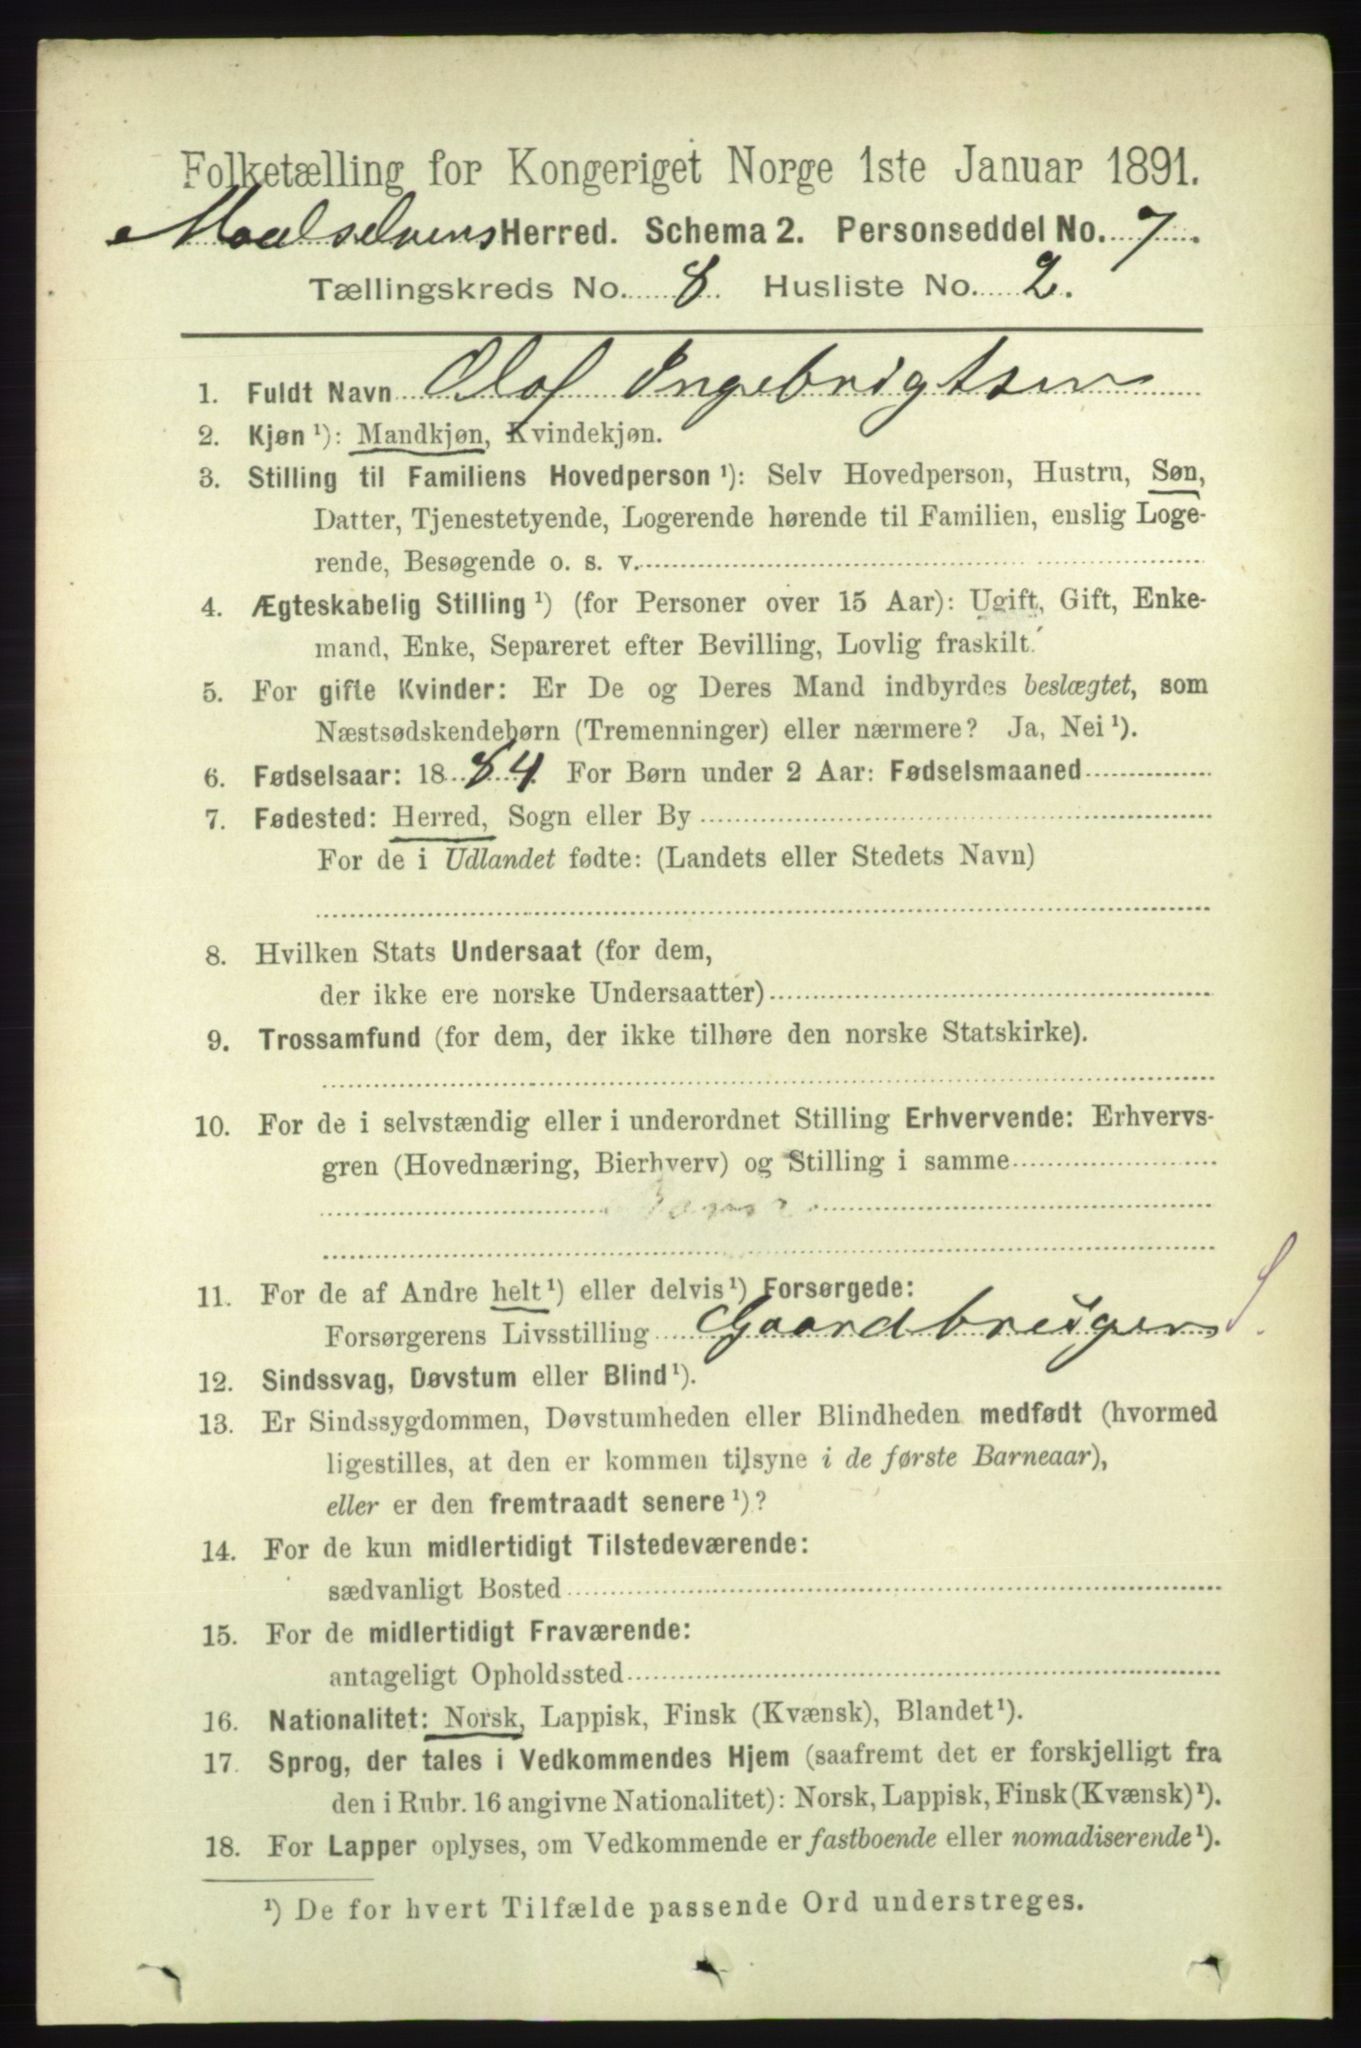 Folketælling for Kongeriget Norge 1ste Januar 1891.
Maalselvens Herred. Schema 2. Personseddel No. 7.
Tællingskreds No. 8. Husliste No. 2.
1. Fuldt Navn Olof Ingebrigtsen
2. Kjøn ¹): Mandkjøn, Kvindekjøn.
3. Stilling til Familiens Hovedperson ¹): Selv Hovedperson, Hustru, Søn,
Datter, Tjenestetyende, Logerende hørende til Familien, enslig Loge-
rende, Besøgende o. s. v.
4. Ægteskabelig Stilling ¹) (for Personer over 15 Aar): Ugift, Gift, Enke-
mand, Enke, Separeret efter Bevilling, Lovlig fraskilt.
5. For gifte Kvinder: Er De og Deres Mand indbyrdes beslægtet, som
Næstsødskendebørn (Tremenninger) eller nærmere? Ja, Nei ¹).
6. Fødselsaar: 1884. For Børn under 2 Aar: Fødselsmaaned
7. Fødested: Herred, Sogn eller By
For de i Udlandet fødte: (Landets eller Stedets Navn)
8. Hvilken Stats Undersaat (for dem,
der ikke ere norske Undersaatter)
9. Trossamfund (for dem, der ikke tilhøre den norske Statskirke).
10. For de i selvstændig eller i underordnet Stilling Erhvervende: Erhvervs-
gren (Hovednæring, Bierhverv) og Stilling i samme
11. For de af Andre helt ¹) eller delvis ¹) Forsørgede:
Forsørgerens Livsstilling Gaardbruger S.
12. Sindssvag, Døvstum eller Blind ¹).
13. Er Sindssygdommen, Døvstumheden eller Blindheden medfødt (hvormed
ligestilles, at den er kommen tilsyne i de første Barneaar),
eller er den fremtraadt senere ¹)?
14. For de kun midlertidigt Tilstedeværende:
sædvanligt Bosted
15. For de midlertidigt Fraværende:
antageligt Opholdssted
16. Nationalitet: Norsk, Lappisk, Finsk (Kvænsk), Blandet ¹).
17. Sprog, der tales i Vedkommendes Hjem (saafremt det er forskjelligt fra
den i Rubr. 16 angivne Nationalitet): Norsk, Lappisk, Finsk (Kvænsk) ¹).
18. For Lapper oplyses, om Vedkommende er fastboende eller nomadiserende ¹).
¹) De for hvert Tilfælde passende Ord understreges.